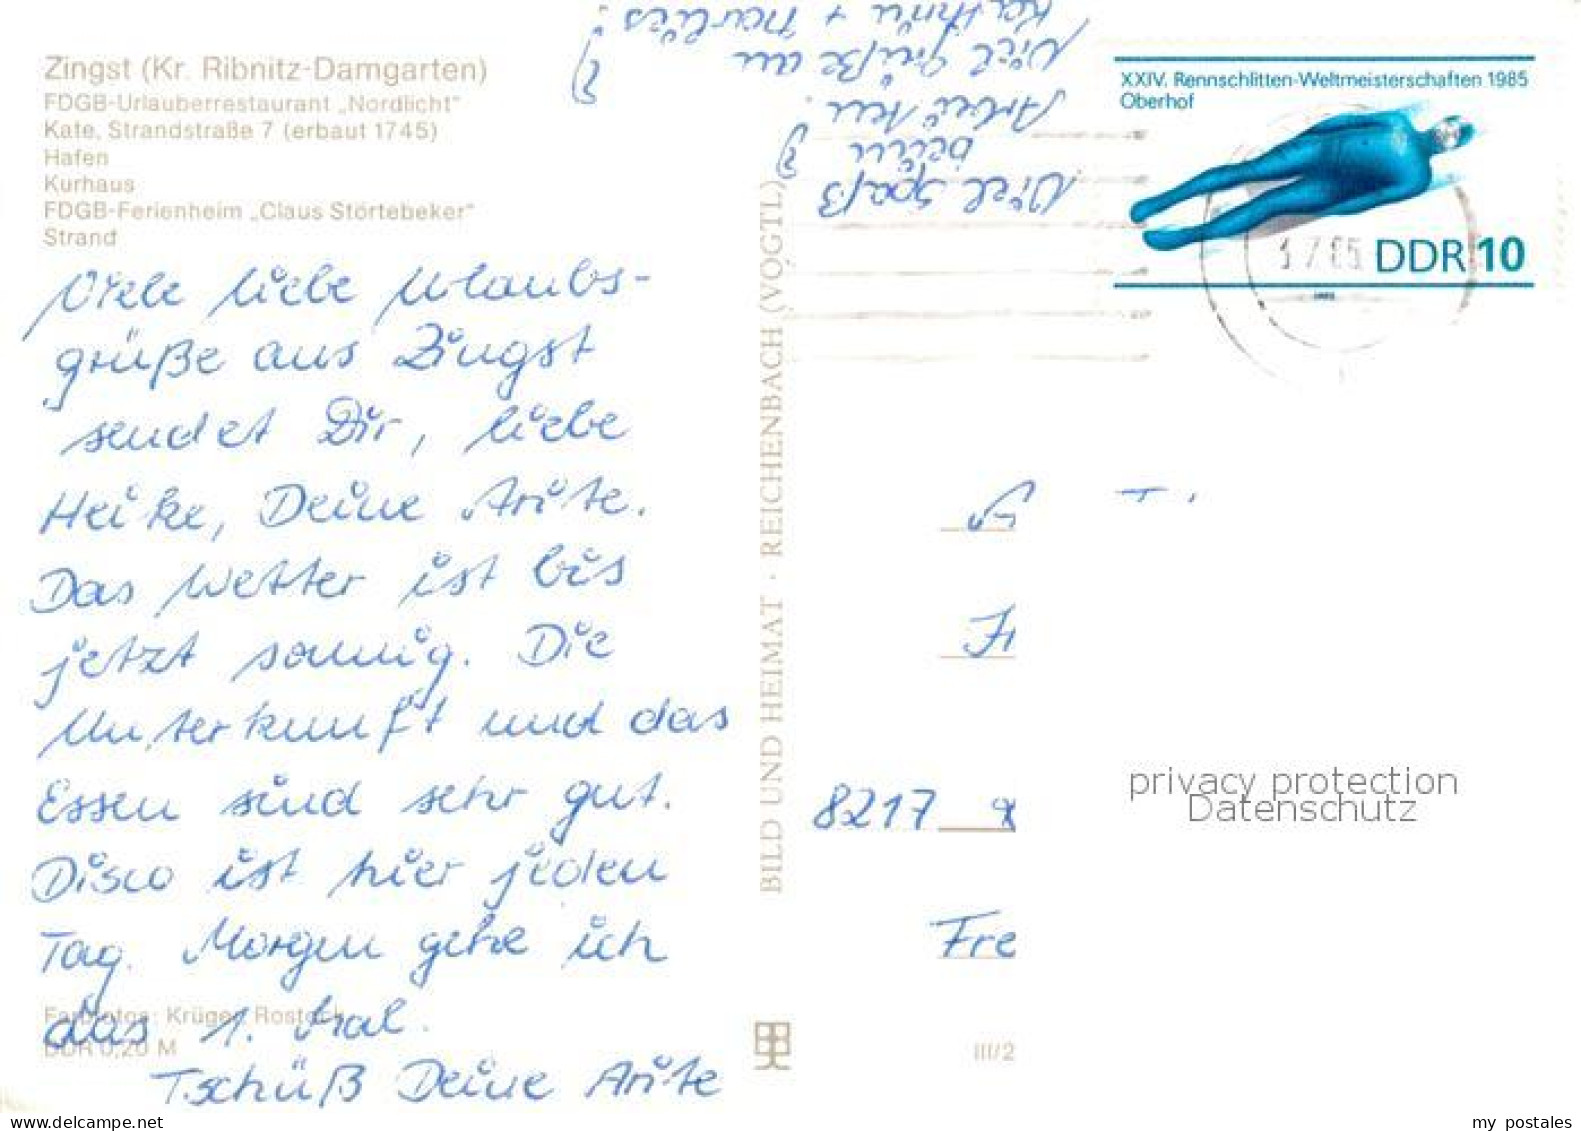 Zingst (Kr. Ribnitz-Damgarten)
FDGB-Urlauberrestaurant „Nordlicht“
Kate, Strandstraße 7 (erbaut 1745)
Hafen
Kurhaus
FDGB-Ferienheim „Claus Störtebeker“
Strand
Viele liebe Urlaubs-
grüße aus Zingst
sendet Dir, liebe
Heike, Deine
Das Wetter ist bis
jetzt sonnig. Die
Unterkunft und das
Essen sind sehr gut.
Disco ist hier jeden
Tag. Morgen gehe ich
das 1. Mal.
Tschüß Deine
Farbfotos: Krüger, Rostock
DDR 0,20 M
BILD UND HEIMAT · REICHENBACH (VOGTL)
III/2
Viel Spaß
beim
Viel Grüße an
Kathrin +
XXIV. Rennschlitten-Weltmeisterschaften 1985
Oberhof
DDR 10
8217
Fre
privacy protection
Datenschutz
www.delcampe.net
my postales